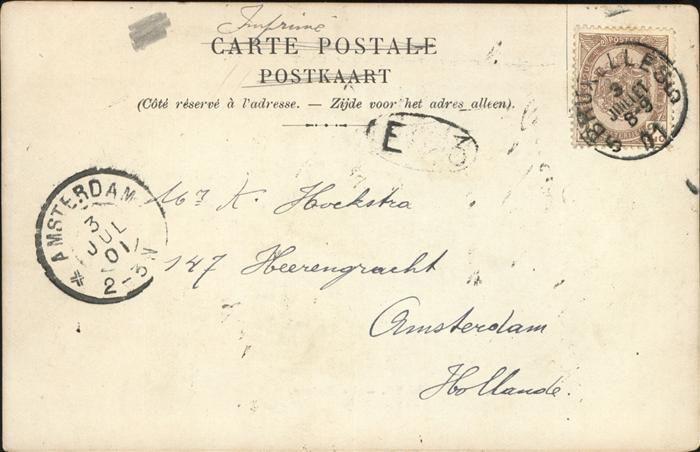 Imprimé
CARTE POSTALE
POSTKAART
(Côté réservé à l'adresse. — Zijde voor het adres alleen).
BRUXELLES 5
3
JUILLET
8-9
01
E
AMSTERDAM
3
JUL
01
2-3N
Mr K. Hoekstra
147 Heerengracht
Amsterdam
Hollande.